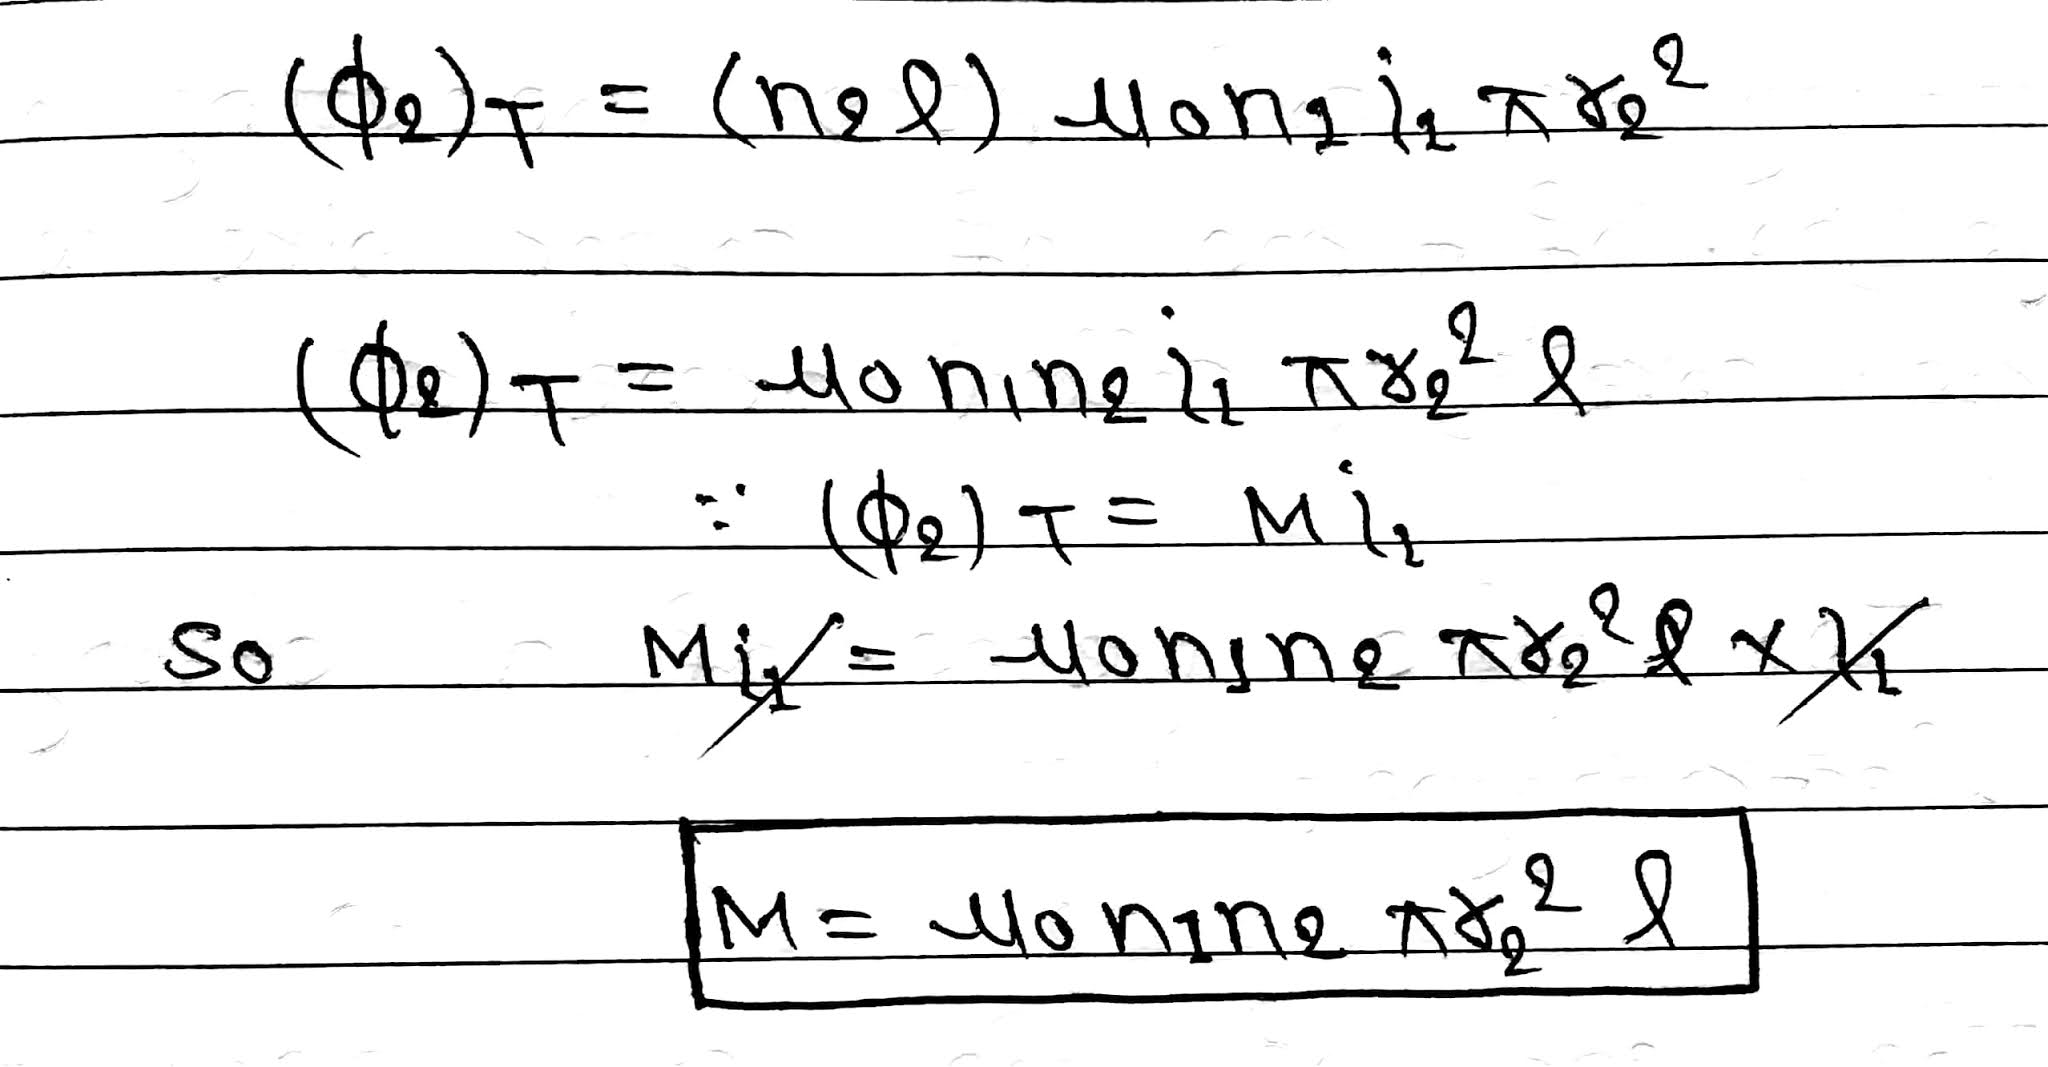 (ϕ₂)T = (n₂l) μ₀n₁ i₁ πr₂²
(ϕ₂)T = μ₀ n₁n₂ i₁ πr₂² l
∵ (ϕ₂)T = M i₁
So M i₁ = μ₀n₁n₂ πr₂² l × i₁
M = μ₀ n₁n₂ πr₂² l